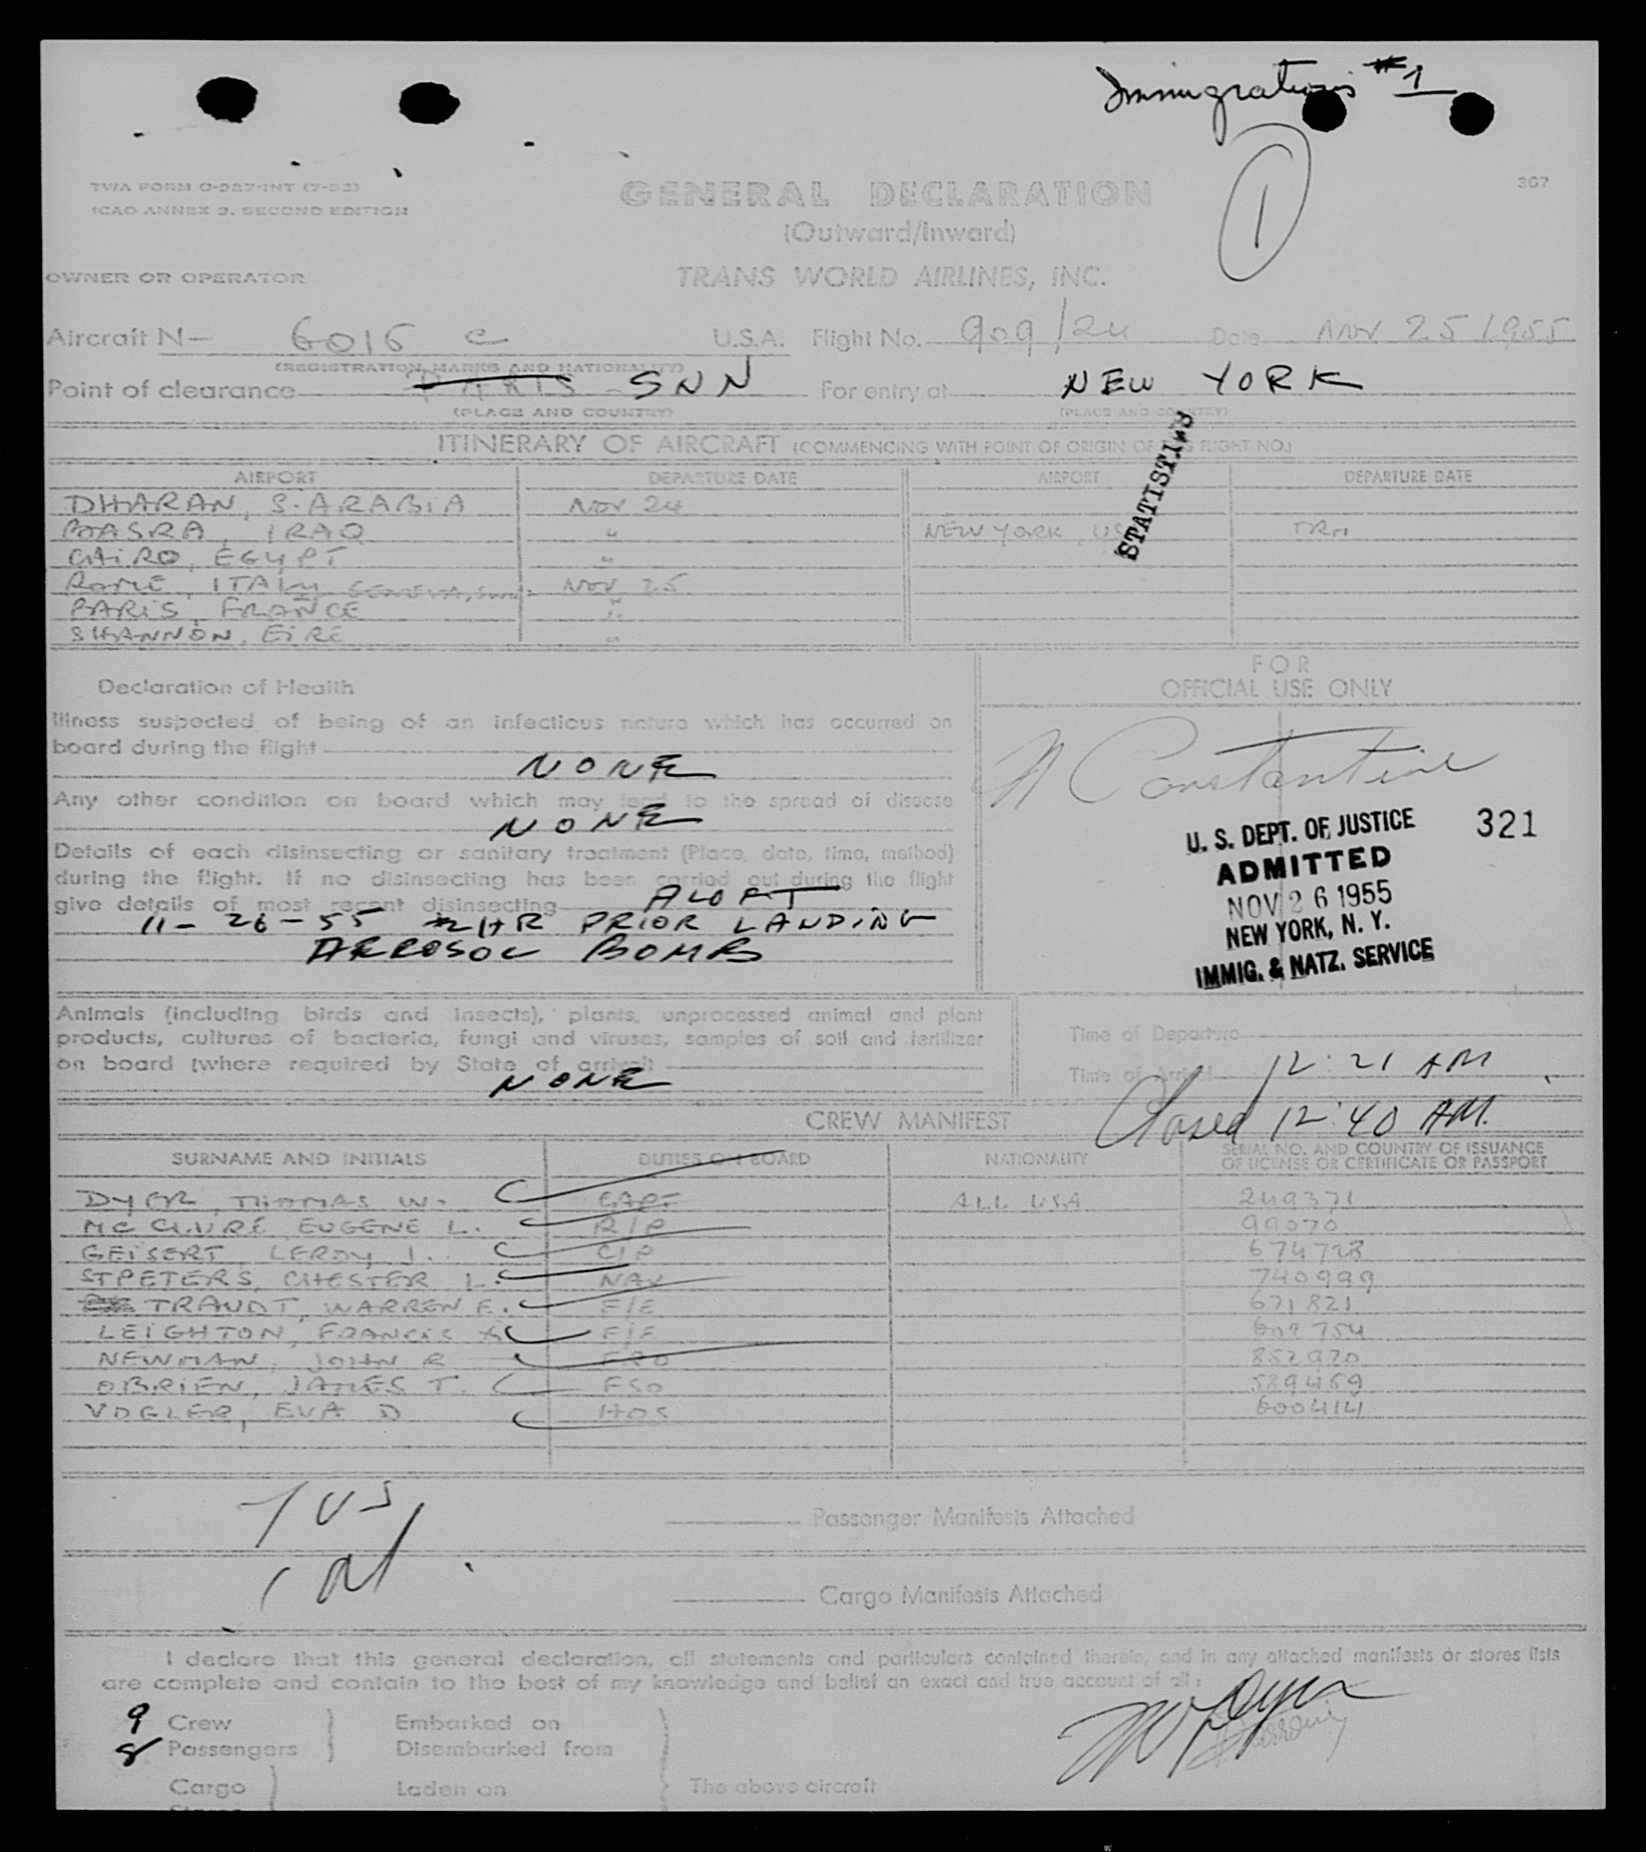 Immigrations #1
1
TWA FORM O-927-INT (7-52)
ICAO ANNEX 9, SECOND EDITION
GENERAL DECLARATION
367
(Outward/Inward)
OWNER OR OPERATOR
TRANS WORLD AIRLINES, INC.
Aircraft N— 6016 C U.S.A. Flight No. 909/24 Date NOV 25 1955
(REGISTRATION MARKS AND NATIONALITY)
Point of clearance PARIS SNN For entry at NEW YORK
(PLACE AND COUNTRY) (PLACE AND COUNTRY)
STATISTICS
ITINERARY OF AIRCRAFT (COMMENCING WITH POINT OF ORIGIN OF THIS FLIGHT NO.)
AIRPORT DEPARTURE DATE AIRPORT DEPARTURE DATE
DHARAN, S. ARABIA NOV 24
BASRA, IRAQ " NEW YORK, US TRM
CAIRO, EGYPT "
ROME, ITALY GENEVA, NOV 25
PARIS, FRANCE "
SHANNON, EIRE "
Declaration of Health
FOR
OFFICIAL USE ONLY
Illness suspected of being of an infectious nature which has occurred on
board during the flight
NONE
Any other condition on board which may lead to the spread of disease
NONE
Details of each disinsecting or sanitary treatment (Place, date, time, method)
during the flight. If no disinsecting has been carried out during the flight
give details of most recent disinsecting ALOFT
11-26-55 HR PRIOR LANDING
AEROSOL BOMB
N Constantine
U. S. DEPT. OF JUSTICE 321
ADMITTED
NOV 26 1955
NEW YORK, N. Y.
IMMIG. & NATZ. SERVICE
Animals (including birds and insects), plants, unprocessed animal and plant
products, cultures of bacteria, fungi and viruses, samples of soil and fertilizer
on board (where required by State of arrival)
NONE
Time of Departure
Time of Arrival 12:21 AM
Closed 12:40 AM.
CREW MANIFEST
SURNAME AND INITIALS DUTIES ON BOARD NATIONALITY SERIAL NO. AND COUNTRY OF ISSUANCE
OF LICENSE OR CERTIFICATE OR PASSPORT
DYER, THOMAS W. CAPT ALL USA 249371
MC CLURE, EUGENE L. R/P 99070
GEISERT, LEROY J. C/P 674728
ST PETERS, CHESTER L. NAV 740999
TRAUDT, WARREN E. F/E 671821
LEIGHTON, FRANCIS F/E 754
NEWMAN, JOHN R FRO 852920
OBRIEN, JAMES T. FSO 589459
VOGLER, EVA D HOS 600414
7 US
1 al
Passenger Manifests Attached
Cargo Manifests Attached
I declare that this general declaration, all statements and particulars contained therein, and in any attached manifests or stores lists
are complete and contain to the best of my knowledge and belief an exact and true account of all:
9 Crew Embarked on
8 Passengers Disembarked from
Cargo Laden on The above aircraft
Stores
TW Dyer